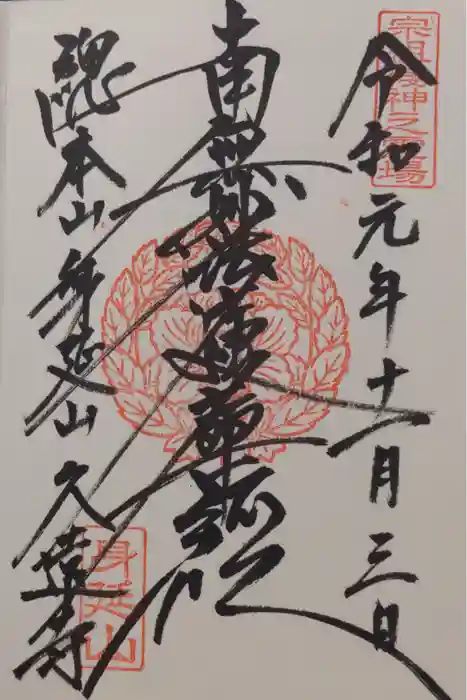 宗祖棲神之霊場
令和元年十一月三日
南無妙法蓮華経
総本山身延山久遠寺
身延山